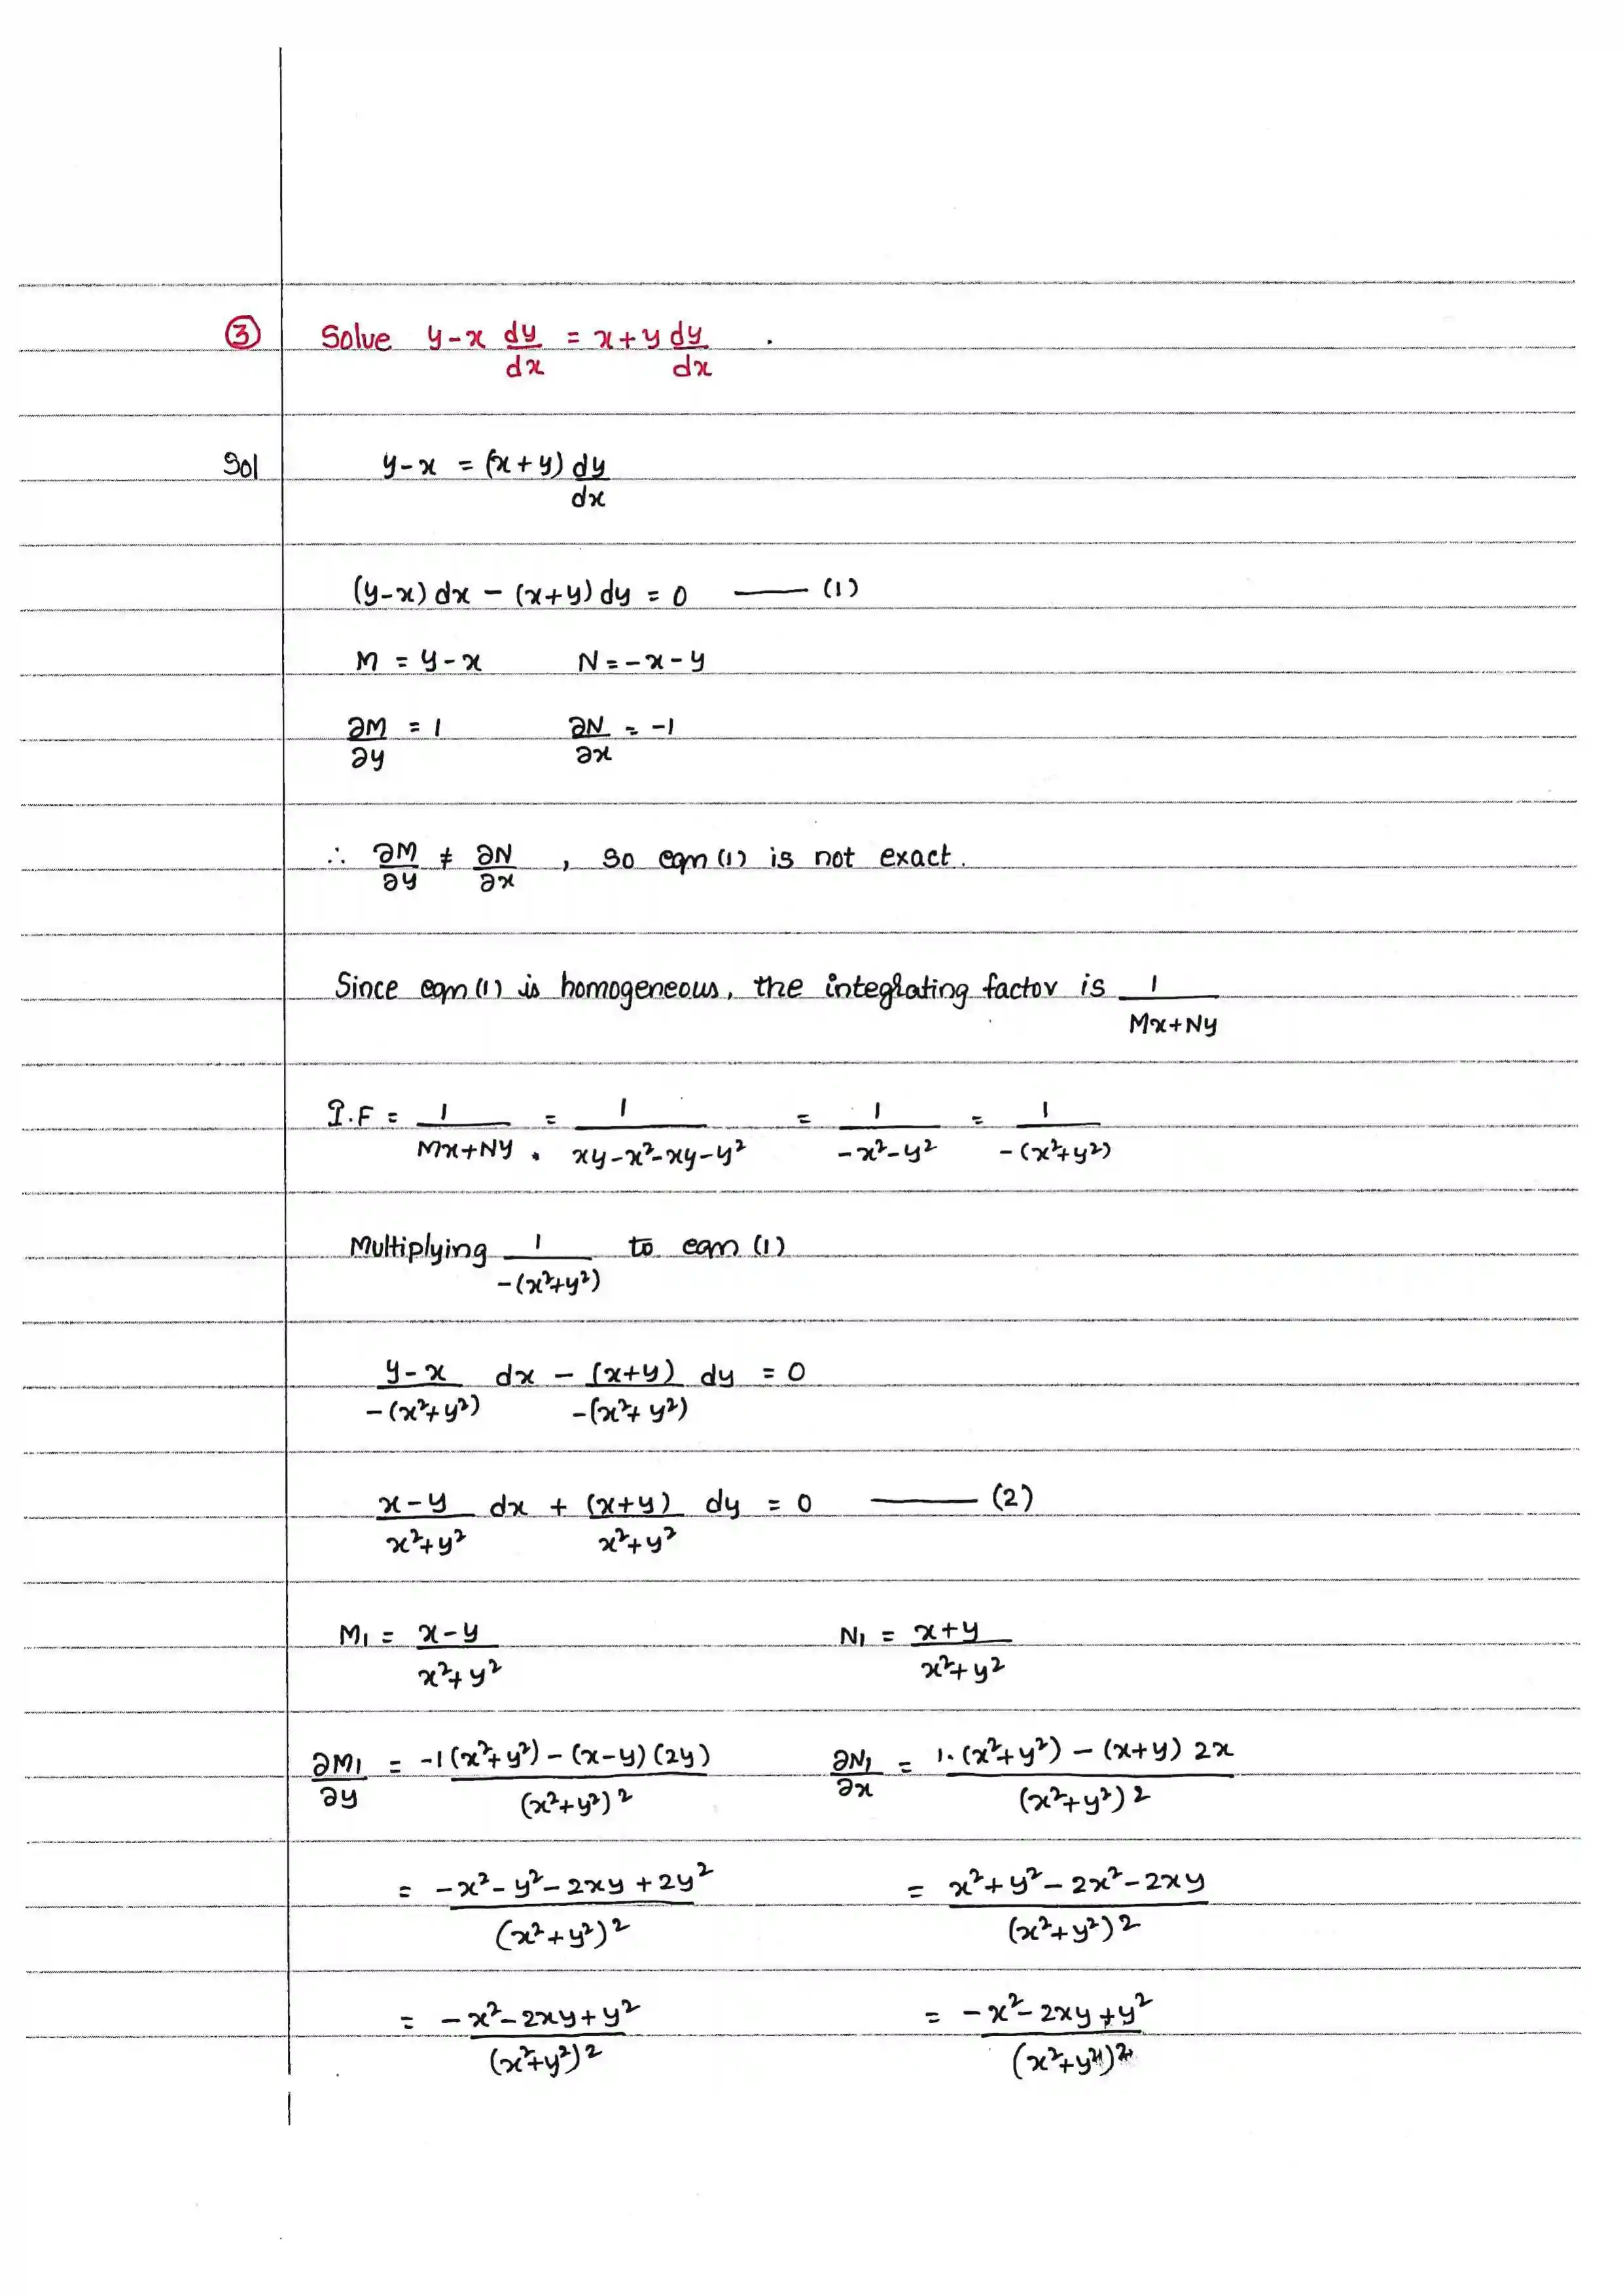 ③ Solve y-x dy/dx = x+y dy/dx .
Sol y-x = (x+y) dy/dx
(y-x) dx - (x+y) dy = 0 —— (1)
M = y-x N = -x-y
∂M/∂y = 1 ∂N/∂x = -1
∴ ∂M/∂y ≠ ∂N/∂x , so eqn (1) is not exact.
Since eqn (1) is homogeneous, the integrating factor is 1/(Mx+Ny)
I.F = 1/(Mx+Ny) = 1/(xy-x²-xy-y²) = 1/(-x²-y²) = 1/(-(x²+y²))
Multiplying 1/(-(x²+y²)) to eqn (1)
(y-x)/(-(x²+y²)) dx - (x+y)/(-(x²+y²)) dy = 0
(x-y)/(x²+y²) dx + (x+y)/(x²+y²) dy = 0 —— (2)
M₁ = (x-y)/(x²+y²) N₁ = (x+y)/(x²+y²)
∂M₁/∂y = (-1(x²+y²)-(x-y)(2y))/(x²+y²)² ∂N₁/∂x = (1.(x²+y²)-(x+y)2x)/(x²+y²)²
= (-x²-y²-2xy+2y²)/(x²+y²)² = (x²+y²-2x²-2xy)/(x²+y²)²
= (-x²-2xy+y²)/(x²+y²)² = (-x²-2xy+y²)/(x²+y²)²